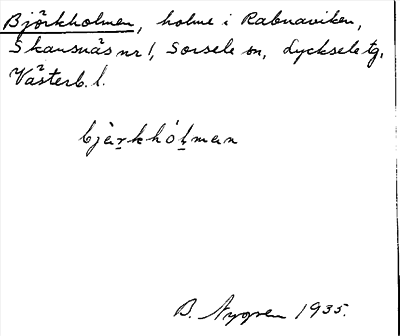 Björkholmen, holme i Rabnaviken,
Skansnäs nr 1, Sorsele sn, Lycksele tg,
Västerb. l.
bjàr̲khól̲man
B. Nygren 1935.